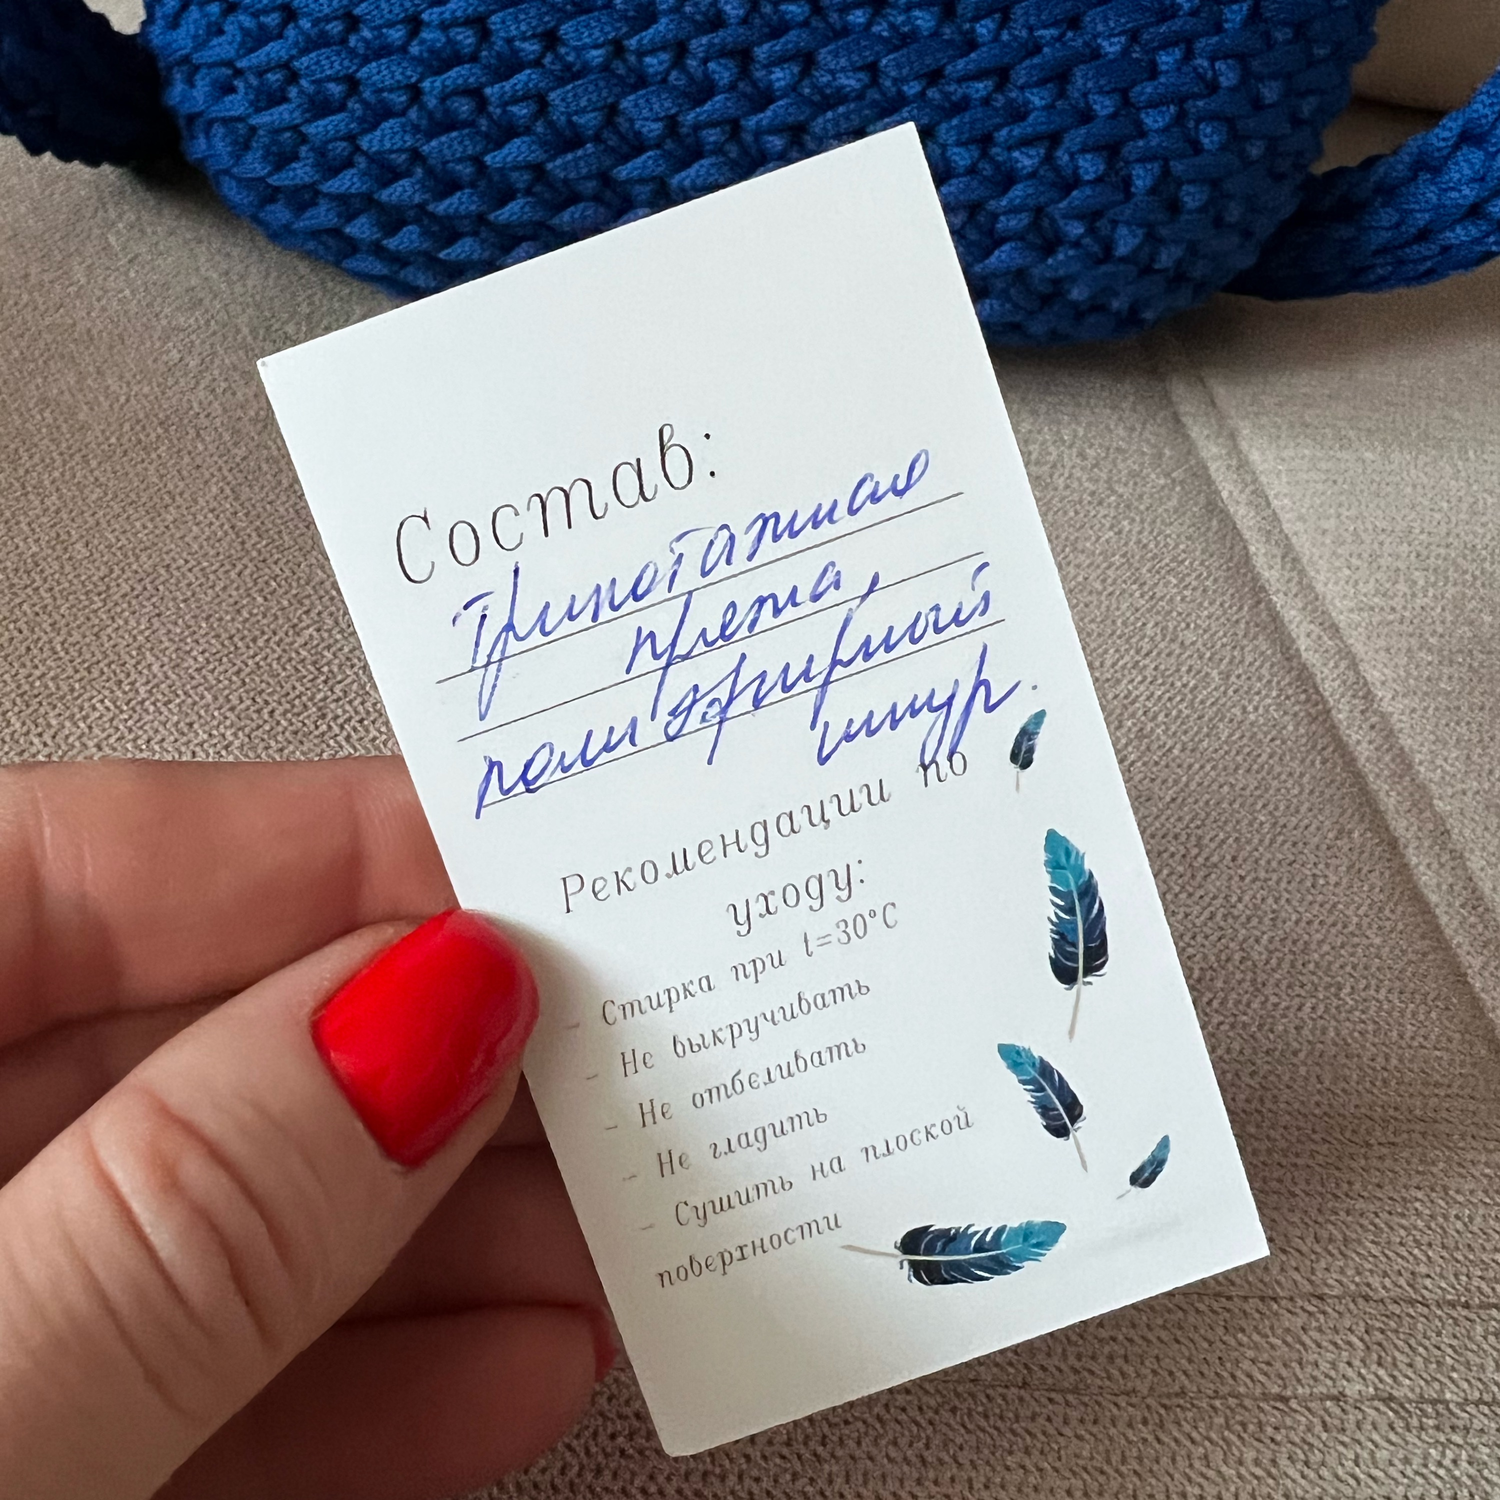 Состав:
Трикотажная
пряжа,
полиэфирный
шнур.
Рекомендации по
уходу:
- Стирка при t=30°C
- Не выкручивать
- Не отбеливать
- Не гладить
- Сушить на плоской
поверхности